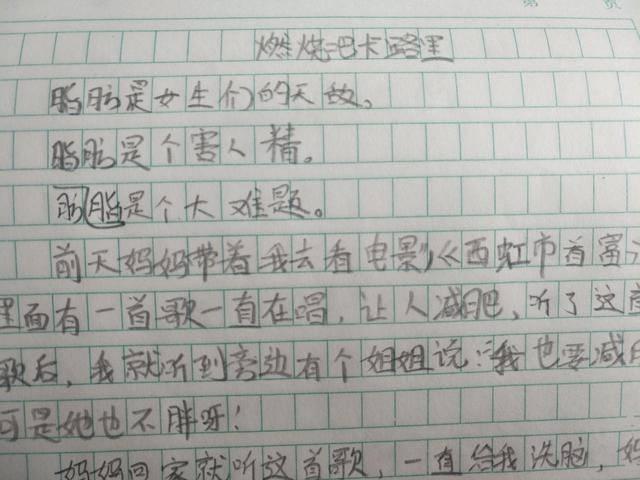 第 页
燃烧吧卡路里
脂肪是女生们的天敌。
脂肪是个害人精。
肪脂是个大难题。
前天妈妈带着我去看电影《西虹市首富》
里面有一首歌一直在唱，让人减肥，听了这首
歌后，我就听到旁边有个姐姐说：我也要减
可是她也不胖呀！
妈妈回家就听这首歌，一直给我洗脑，妈